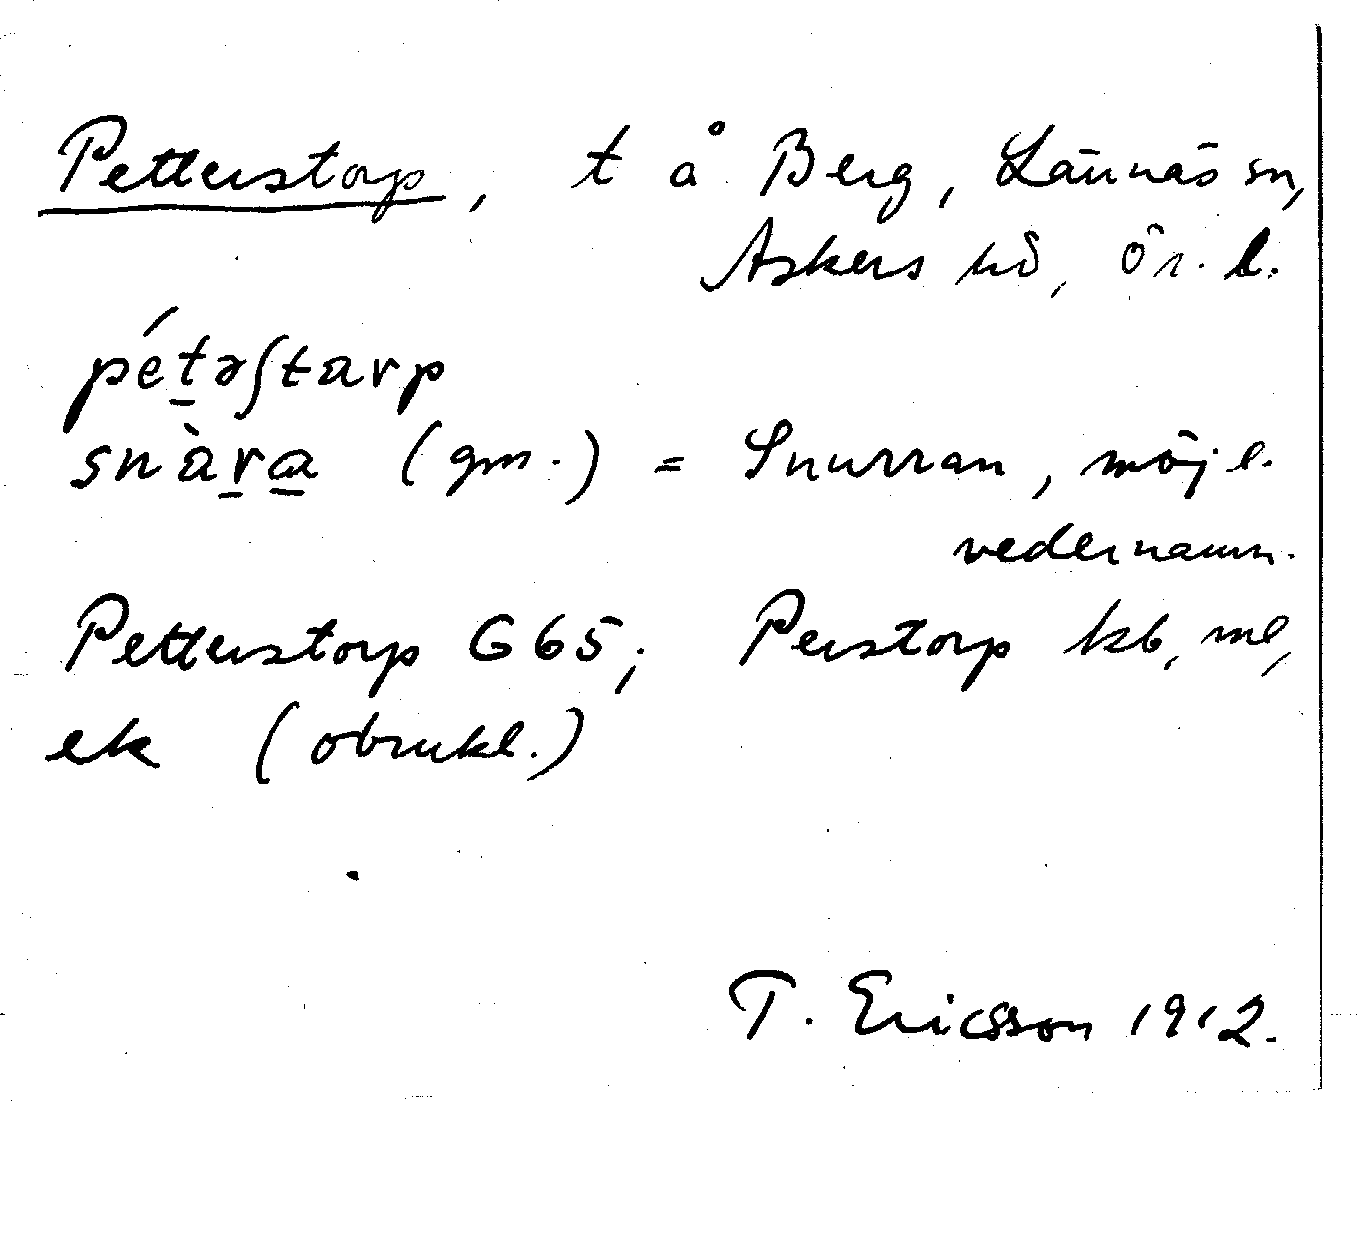 Petterstorp, t å Berg, Lännäs sn,
Askers hd, Ör. l.
pétəʃtarp
snàra (gm.) = Snurran, möjl.
vedernamn.
Petterstorp G65; Perstorp kb, ml,
ek (obrukl.)
T. Ericsson 1912.